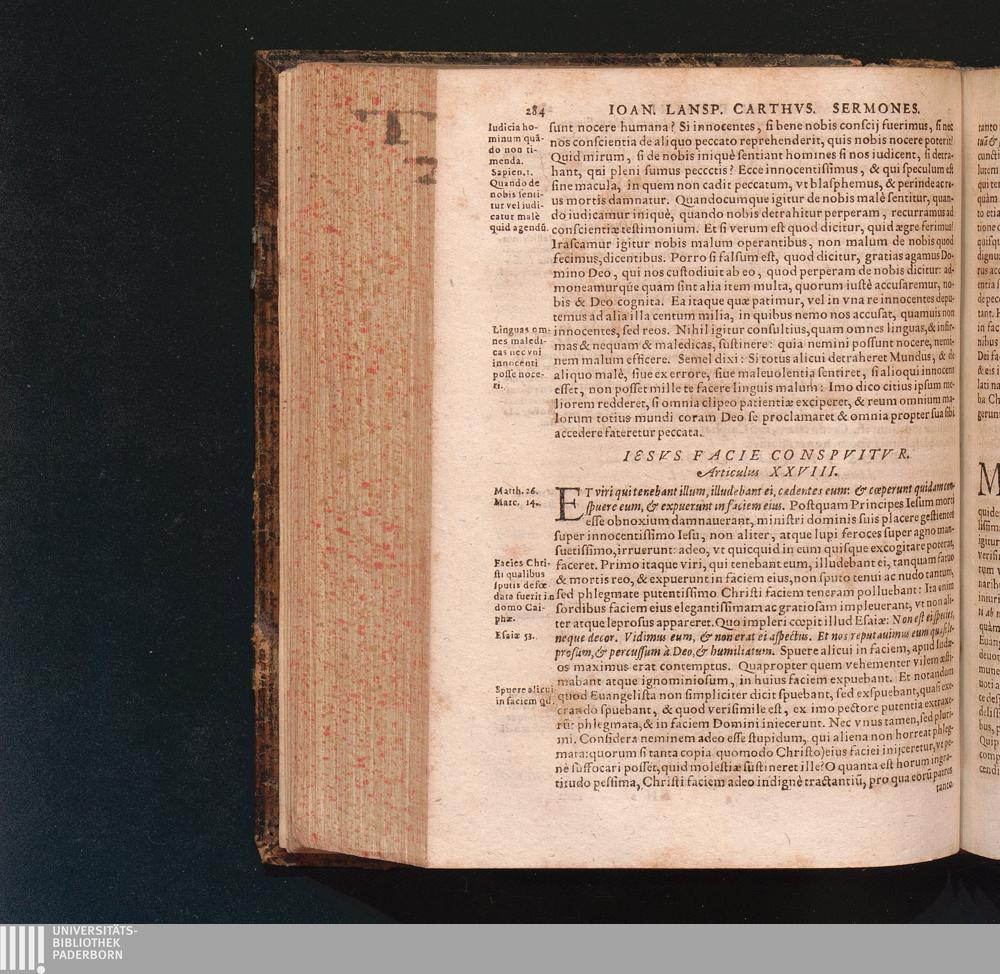 284 IOAN. LANSP. CARTHVS. SERMONES.
Iudicia ho-
minum quã-
do non ti-
menda.
Sapien.1.
Quando de
nobis senti-
tur vel iudi-
catur malè
quid agendũ.
sunt nocere humana? Si innocentes, si bene nobis conscij fuerimus, si nec
nos conscientia de aliquo peccato reprehenderit, quis nobis nocere poterit?
Quid mirum, si de nobis iniquè sentiant homines si nos iudicent, si detra-
hant, qui pleni sumus peccctis? Ecce innocentissimus, & qui speculum est
sine macula, in quem non cadit peccatum, vt blasphemus, & perinde ac re-
us mortis damnatur. Quandocumque igitur de nobis malè sentitur, quan-
do iudicamur iniquè, quando nobis detrahitur perperam, recurramus ad
conscientiæ testimonium. Et si verum est quod dicitur, quid ægre ferimus?
Irascamur igitur nobis malum operantibus, non malum de nobis quod
fecimus, dicentibus. Porro si falsum est, quod dicitur, gratias agamus Do-
mino Deo, qui nos custodiuit ab eo, quod perperam de nobis dicitur: ad-
moneamurque quàm sint alia item multa, quorum iustè accusaremur, no-
bis & Deo cognita. Ea itaque quæ patimur, vel in vna re innocentes depu-
temus ad alia illa centum milia, in quibus nemo nos accusat, quamuis non
innocentes, sed reos. Nihil igitur consultius, quam omnes linguas, & infir-
mas & nequam & maledicas, sustinere: quia nemini possunt nocere, nemi-
nem malum efficere. Semel dixi: Si totus alicui detraheret Mundus, & de
aliquo malè, siue ex errore, siue maleuolentia sentiret, si alioqui innocens
esset, non posset mille te facere linguis malum: Imo dico citius ipsum me-
liorem redderet, si omnia clipeo patientiæ exciperet, & reum omnium ma-
lorum totius mundi coram Deo se proclamaret & omnia propter sua sibi
accedere fateretur peccata.
Linguas om-
nes maledi-
cas nec vni
innocenti
posse noce-
ri.
IESVS FACIE CONSPVITVR.
Articulus XXVIII.
Matth. 26.
Marc. 14.
ET viri qui tenebant illum, illudebant ei, cædentes eum: & cœperunt quidam con-
spuere eum, & expuerunt in faciem eius. Postquam Principes Iesum morti
esse obnoxium damnauerant, ministri dominis suis placere gestientes
super innocentissimo Iesu, non aliter, atque lupi feroces super agno man-
suetissimo, irruerunt: adeo, vt quicquid in eum quisque excogitare poterat,
faceret. Primo itaque viri, qui tenebant eum, illudebant ei, tanquam fatuo
& mortis reo, & expuerunt in faciem eius, non sputo tenui ac nudo tantum,
sed phlegmate putentissimo Christi faciem teneram polluebant: Ita enim
sordibus faciem eius elegantissimam ac gratiosam impleuerant, vt non ali-
ter atque leprosus appareret. Quo impleri cœpit illud Esaiæ: Non est ei species,
neque decor. Vidimus eum, & non erat ei aspectus. Et nos reputauimus eum quasi le-
prosum, & percussum à Deo, & humiliatum. Spuere alicui in faciem, apud Iudæ-
os maximus erat contemptus. Quapropter quem vehementer vilem æsti-
mabant atque ignominiosum, in huius faciem expuebant. Et notandum
quod Euangelista non simpliciter dicit spuebant, sed exspuebant, quasi exe-
crando spuebant, & quod verisimile est, ex imo pectore putentia extraxe-
rũt phlegmata, & in faciem Domini iniecerunt. Nec vnus tamen, sed pluri-
mi. Considera neminem adeo esse stupidum, qui aliena non horreat phleg-
mata: quorum si tanta copia quomodo Christo) eius faciei inijceretur, vt pe-
nè suffocari posset, quid molestiæ sustineret ille? O quanta est horum ingra-
titudo pessima, Christi faciem adeo indignè tractantiũ, pro qua eorũ patres
tanto
Facies Chri-
sti qualibus
sputis defœ-
data fuerit in
domo Cai-
phæ.
Esaiæ 53.
Spuere alicui
in faciem qd.
UNIVERSITÄTS-
BIBLIOTHEK
PADERBORN